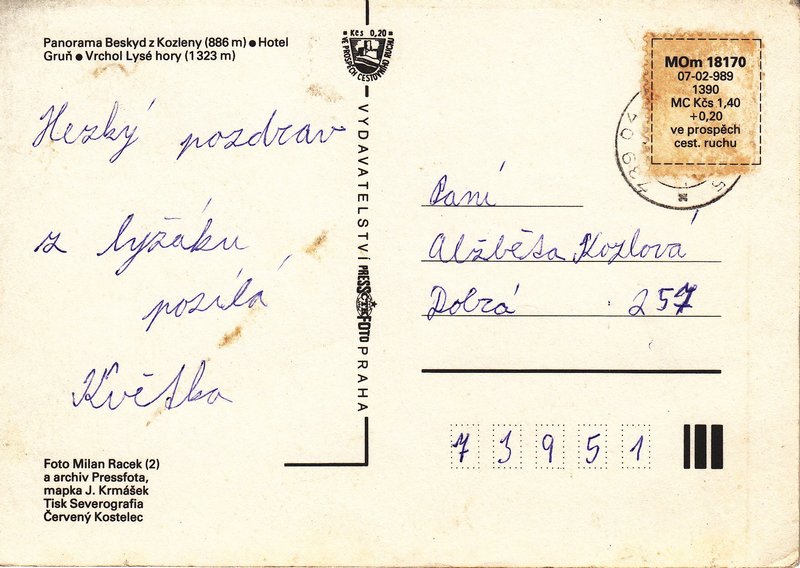 Panorama Beskyd z Kozleny (886 m) ● Hotel
Gruň ● Vrchol Lysé hory (1 323 m)
Kčs 0,20
VE PROSPĚCH CESTOVNÍHO RUCHU
MOm 18170
07-02-989
1390
MC Kčs 1,40
+0,20
ve prospěch
cest. ruchu
739
Hezký pozdrav
z lyžáku
posílá
Květka
VYDAVATELSTVÍ PRESSFOTO PRAHA
Paní
Alžběta Kozlová
Dobrá 257
73951
Foto Milan Racek (2)
a archiv Pressfota,
mapka J. Krmášek
Tisk Severografia
Červený Kostelec